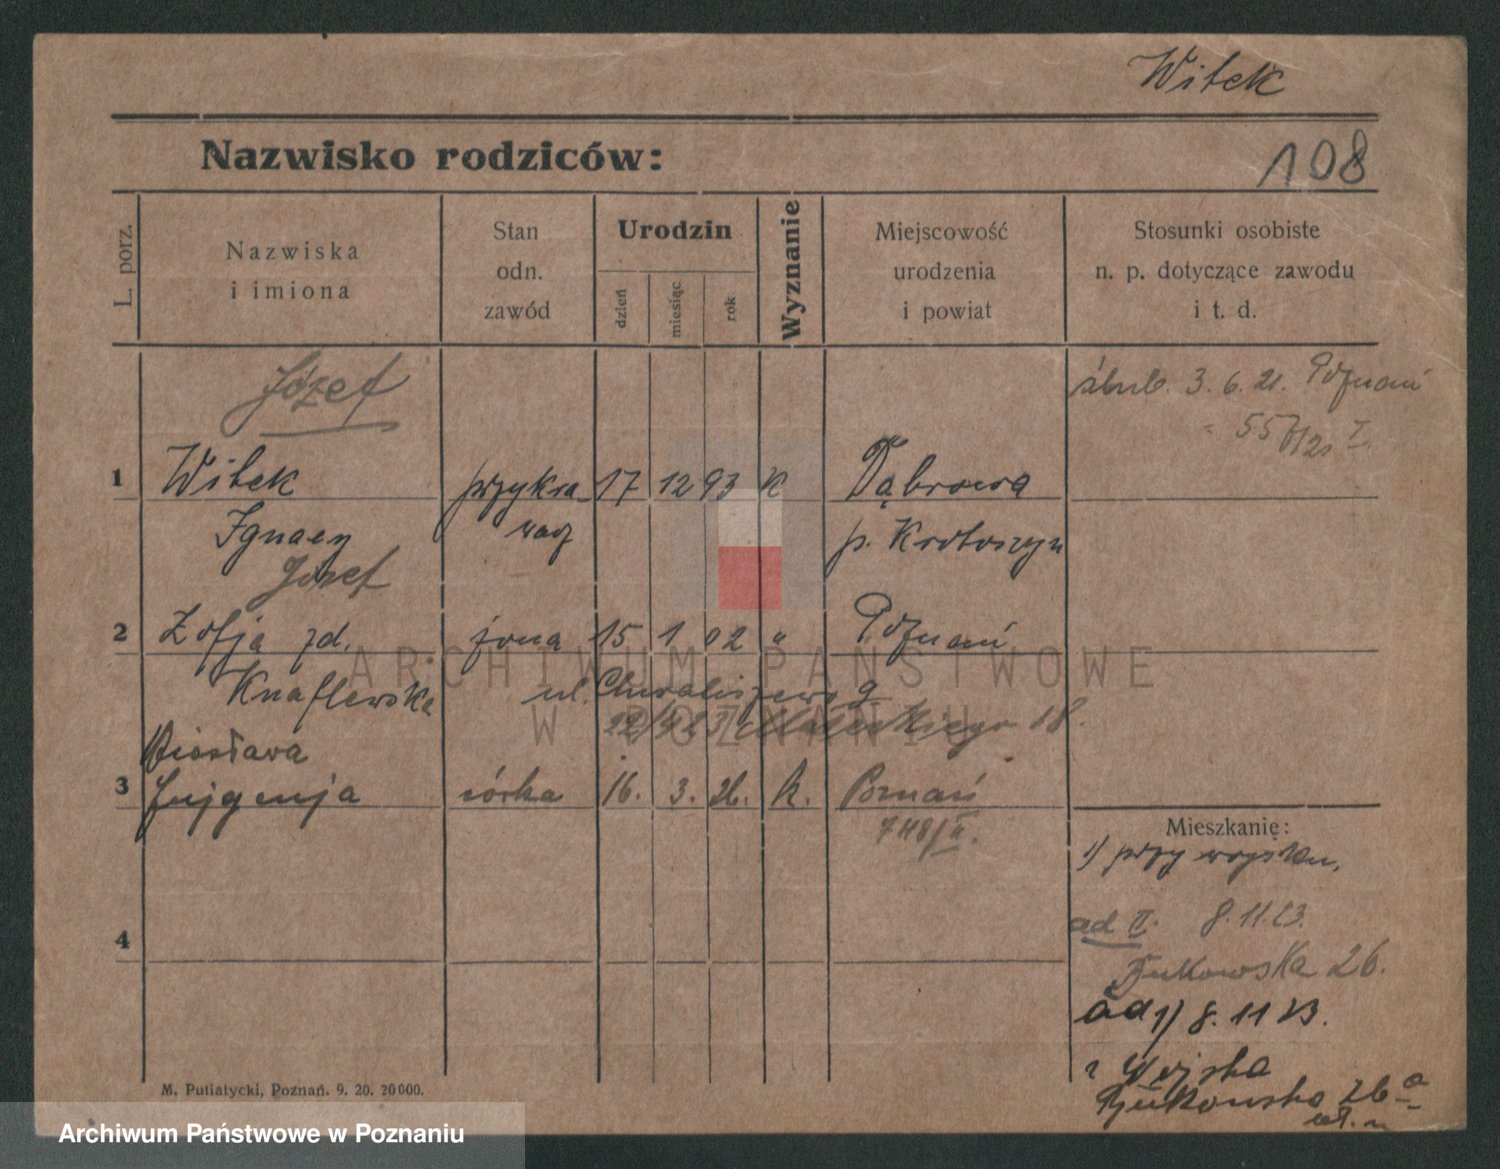 Witek
Nazwisko rodziców:
108
L. porz.
Nazwiska
i imiona
Stan
odn.
zawód
Urodzin
dzień
miesiąc
rok
Wyznanie
Miejscowość
urodzenia
i powiat
Stosunki osobiste
n. p. dotyczące zawodu
i t. d.
Józef
ślub. 3. 6. 21. Poznań
1 Witek przykra- 17 12 93 K Dąbrowa
Ignacy wacz p. Krotoszyn
Józef
2 Zofja zd. żona 15 1 02 " Poznań
Knaflewska ul. Chwaliszewo
18.
3 Eugenja córka 16. 3. 26. k. Poznań
748/II.
Mieszkanie:
1) przy wojsku,
ad II. 8.11.23.
Bukowska 26.
4
ad 1) 8. 11 23.
z Wojska
Bukowska 26 a
M. Putiatycki, Poznań. 9. 20. 20000.
ARCHIWUM PAŃSTWOWE
W POZNANIU
Archiwum Państwowe w Poznaniu